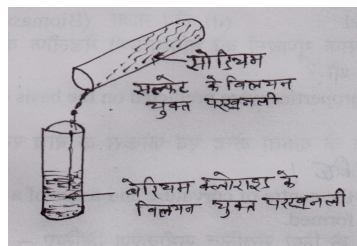 सोडियम
सल्फेट के विलयन
युक्त परखनली
बेरियम क्लोराइड के
विलयन युक्त परखनली